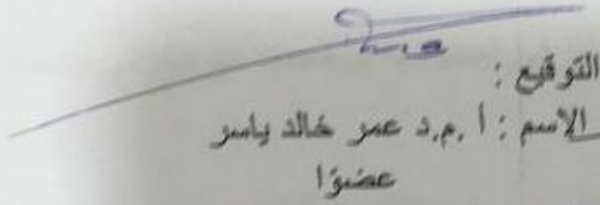 التوقيع :
الاسم : أ.م.د عمر خالد ياسر
عضوًا